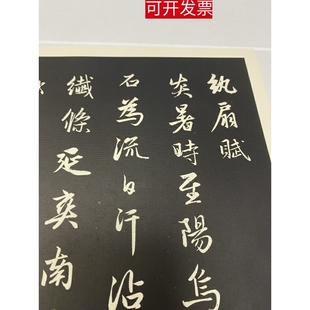 可开发票
纨扇賦
炎暑時至陽烏
石為流白汗沾
纖條延爽南